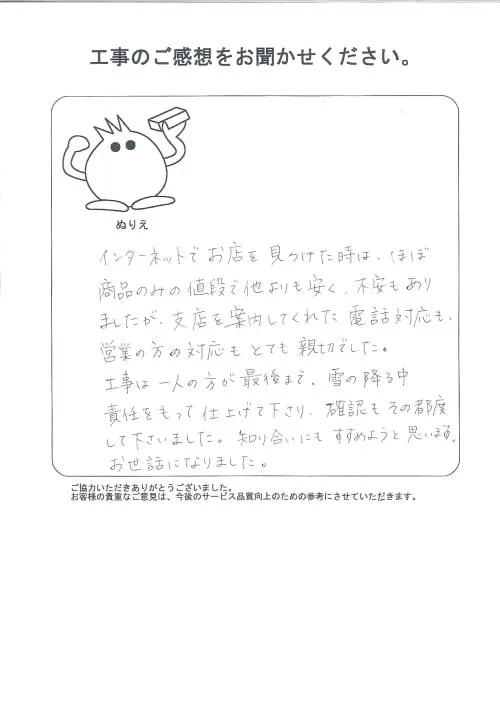 工事のご感想をお聞かせください。
ぬりえ
インターネットでお店を見つけた時は、ほぼ
商品のみの値段で他よりも安く、不安もあり
ましたが、支店を案内してくれた電話対応も、
営業の方の対応もとても親切でした。
工事は一人の方が最後まで、雪の降る中
責任をもって仕上げて下さり、確認もその都度
して下さいました。知り合いにもすすめようと思います。
お世話になりました。
ご協力いただきありがとうございました。
お客様の貴重なご意見は、今後のサービス品質向上のための参考にさせていただきます。